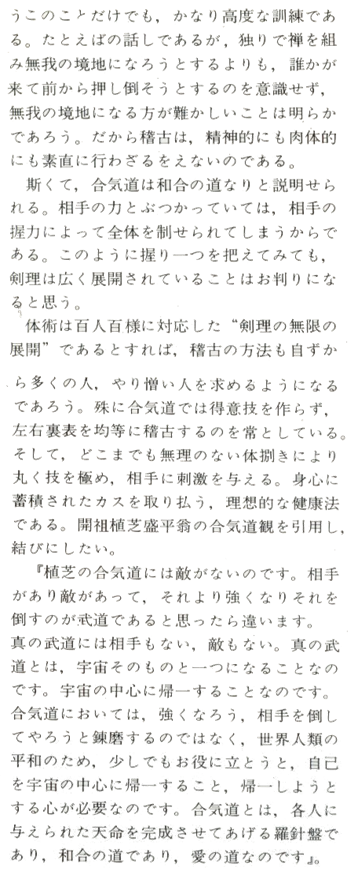 うこのことだけでも，かなり高度な訓練であ
る。たとえばの話しであるが，独りで禅を組
み無我の境地になろうとするよりも，誰かが
来て前から押し倒そうとするのを意識せず，
無我の境地になる方が難かしいことは明らか
であろう。だから稽古は，精神的にも肉体的
にも素直に行わざるをえないのである。
　斯くて，合気道は和合の道なりと説明せら
れる。相手の力とぶつかっていては，相手の
握力によって全体を制せられてしまうからで
ある。このように握り一つを把えてみても，
剣理は広く展開されていることはお判りにな
ると思う。
　体術は百人百様に対応した“剣理の無限の
展開”であるとすれば，稽古の方法も自ずか
ら多くの人，やり憎い人を求めるようになる
であろう。殊に合気道では得意技を作らず，
左右裏表を均等に稽古するのを常としている。
そして，どこまでも無理のない体捌きにより
丸く技を極め，相手に刺激を与える。身心に
蓄積されたカスを取り払う，理想的な健康法
である。開祖植芝盛平翁の合気道観を引用し，
結びにしたい。
　『植芝の合気道には敵がないのです。相手
があり敵があって，それより強くなりそれを
倒すのが武道であると思ったら違います。
真の武道には相手もない，敵もない。真の武
道とは，宇宙そのものと一つになることなの
です。宇宙の中心に帰一することなのです。
合気道においては，強くなろう，相手を倒し
てやろうと錬磨するのではなく，世界人類の
平和のため，少しでもお役に立とうと，自己
を宇宙の中心に帰一すること，帰一しようと
する心が必要なのです。合気道とは，各人に
与えられた天命を完成させてあげる羅針盤で
あり，和合の道であり，愛の道なのです』。